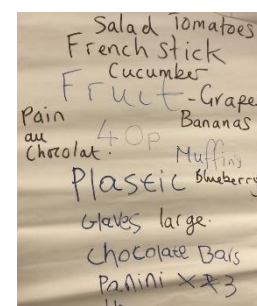 Salad Tomatoes
French stick
Cucumber
Fruit - Grape
Bananas
Pain
au
Chocolat.
40p
Muffins
Blueberry
Plastic
Gloves large.
Chocolate Bars
Panini x 3